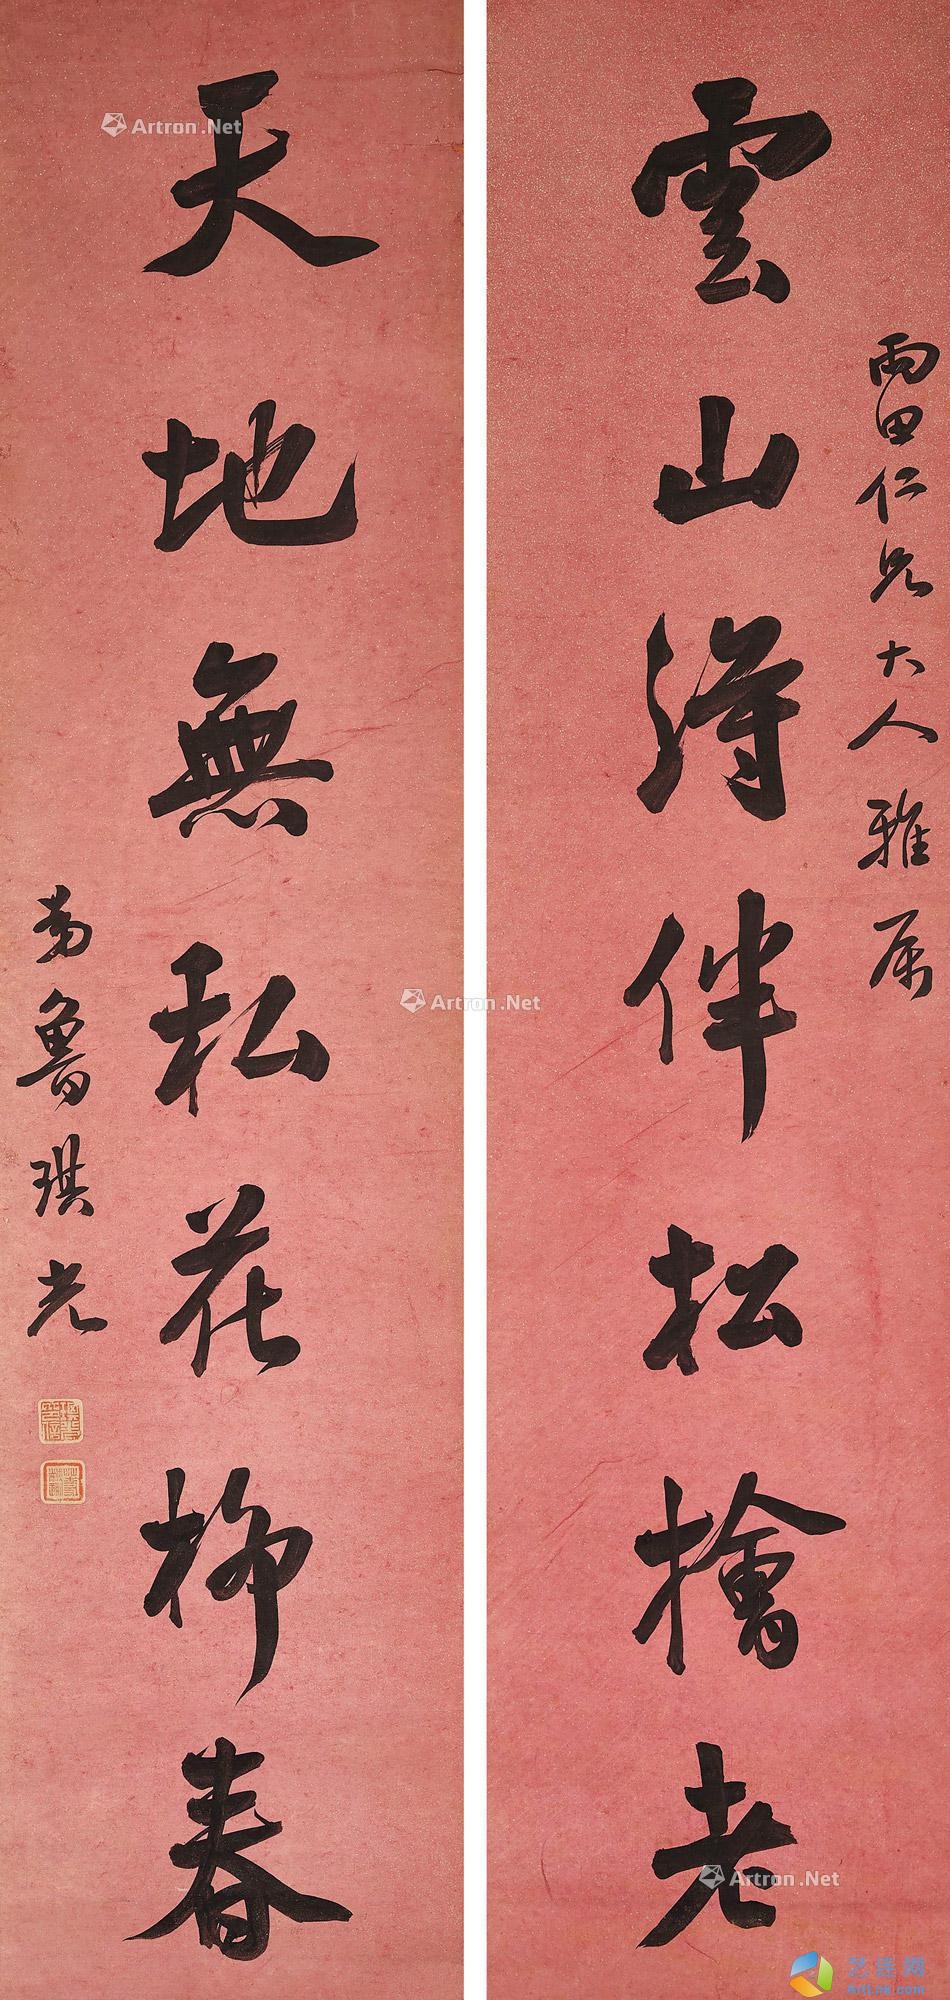 雨田仁兄大人雅属
雲山得伴松檜老
天地無私花柳春
弟魯琪光
Artron.Net
Artron.Net
Artron.Net
艺连网
ArtLnk.com